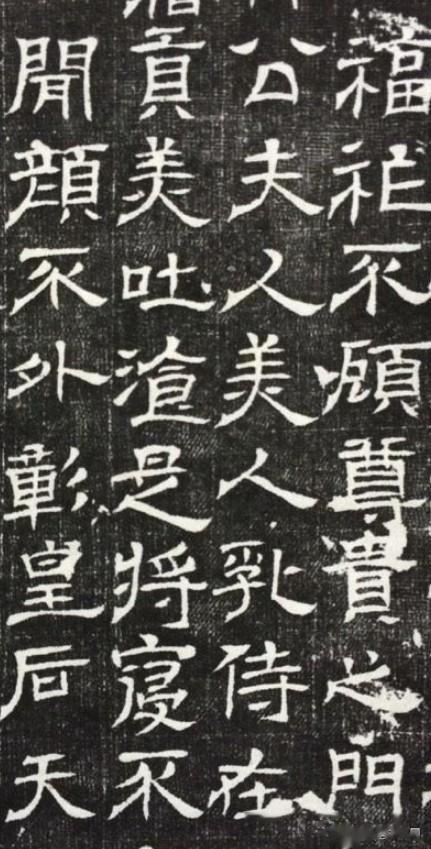 福祚不顧尊貴之門
公夫人美人乳侍在
貢美吐湌是將寢不
聞顔不外彰皇后天